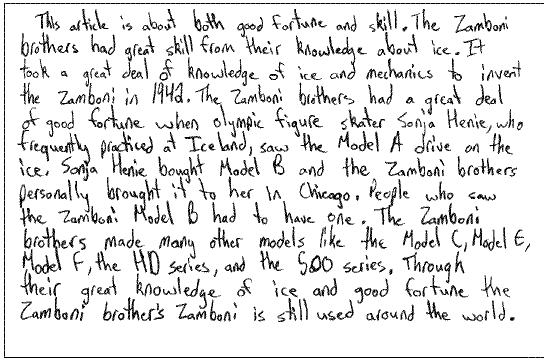 This article is about both good fortune and skill. The Zamboni
brothers had great skill from their knowledge about ice. It
took a great deal of knowledge of ice and mechanics to invent
the Zamboni in 1942. The Zamboni brothers had a great deal
of good fortune when olympic figure skater Sonja Henie, who
frequently practiced at Iceland, saw the Model A drive on the
ice. Sonja Henie bought Model B and the Zamboni brothers
personally brought it to her in Chicago. People who saw
the Zamboni Model B had to have one. The Zamboni
brothers made many other models like the Model C, Model E,
Model F, the HD series, and the 500 series. Through
their great knowledge of ice and good fortune the
Zamboni brother's Zamboni is still used around the world.